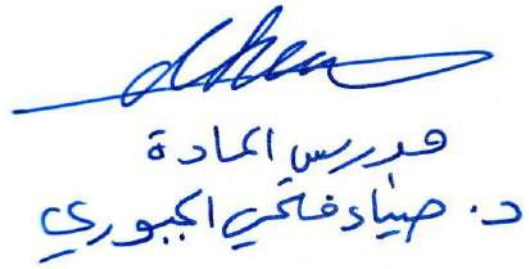 مدرس المادة
د. ضياء فتحي الجبوري